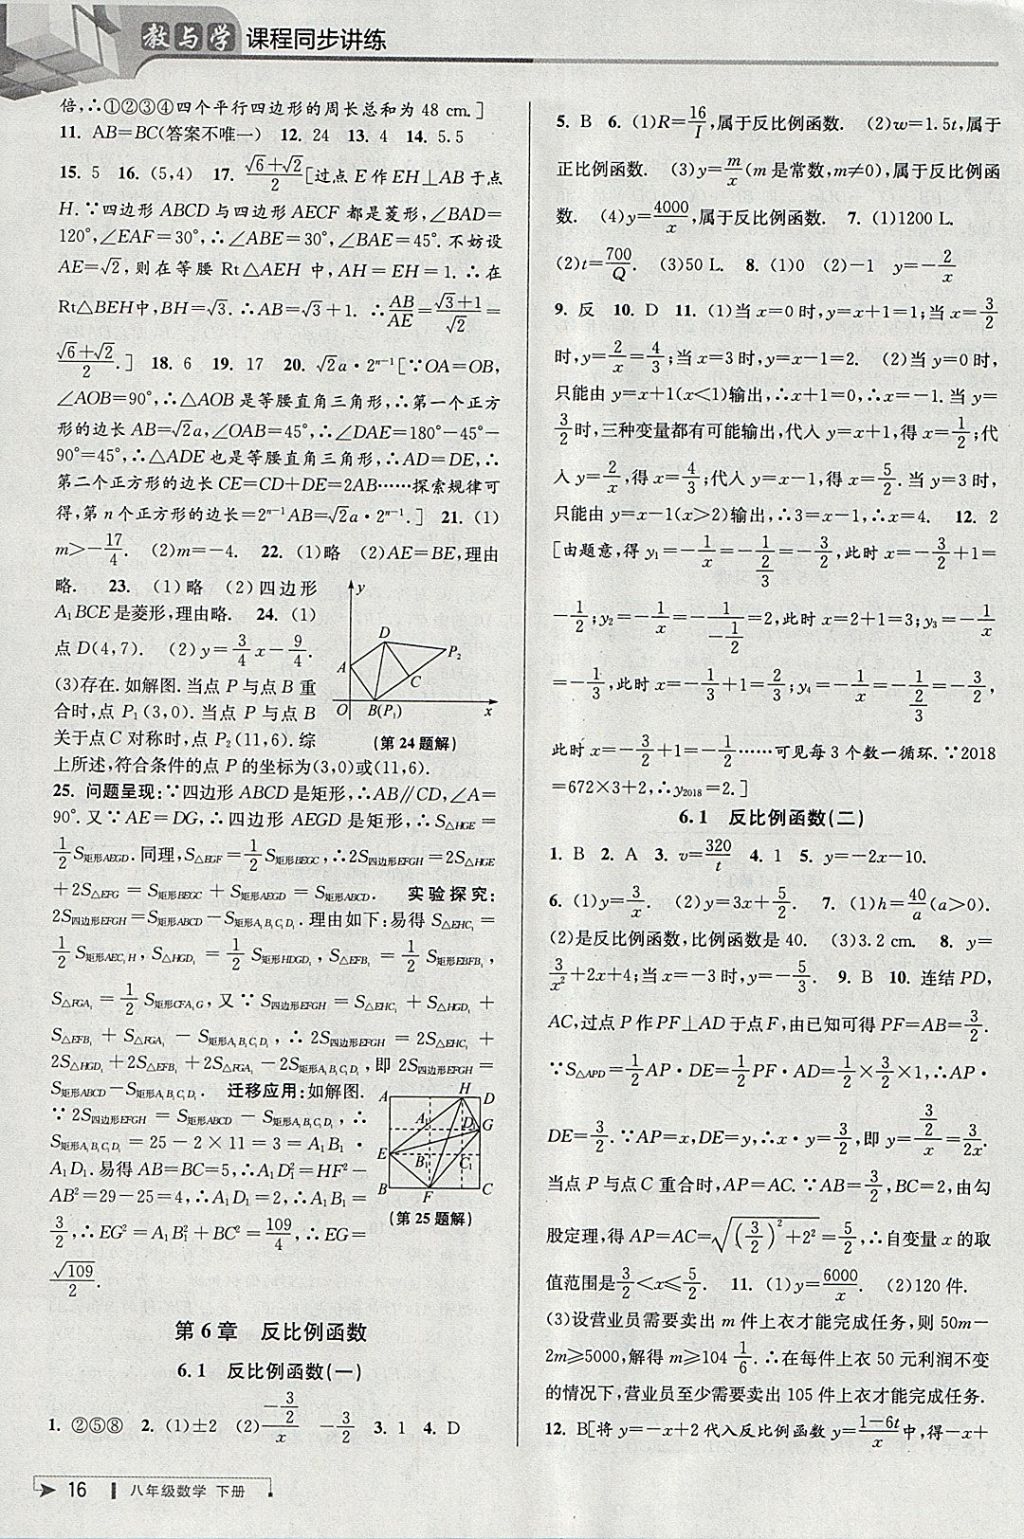 教与学 课程同步讲练
倍,∴①②③④四个平行四边形的周长总和为 48 cm.]
11. AB=BC(答案不唯一) 12. 24 13. 4 14. 5.5
15. 5 16. (5,4) 17. (√6+√2)/2 [过点 E 作 EH⊥AB 于点
H. ∵四边形 ABCD 与四边形 AECF 都是菱形,∠BAD=
120°,∠EAF=30°,∴∠ABE=30°,∠BAE=45°. 不妨设
AE=√2,则在等腰 Rt△AEH 中,AH=EH=1. ∴在
Rt△BEH中,BH=√3. ∴AB=√3+1. ∴AB/AE=(√3+1)/√2=
(√6+√2)/2.] 18. 6 19. 17 20. √2a·2ⁿ⁻¹[∵OA=OB,
∠AOB=90°,∴△AOB是等腰直角三角形,∴第一个正方
形的边长AB=√2a,∠OAB=45°,∴∠DAE=180°-45°-
90°=45°,∴△ADE也是等腰直角三角形,∴AD=DE,∴
第二个正方形的边长CE=CD+DE=2AB……探索规律可
得,第n个正方形的边长=2ⁿ⁻¹AB=√2a·2ⁿ⁻¹.] 21. (1)
m>-17/4. (2)m=-4. 22. (1)略 (2)AE=BE,理由
略. 23. (1)略 (2)四边形
A₁BCE是菱形,理由略. 24. (1)
点D(4,7). (2)y=3/4x-9/4.
(3)存在. 如解图. 当点 P 与点 B 重
合时,点 P₁(3,0). 当点 P 与点 B
关于点C 对称时,点 P₂(11,6). 综
上所述,符合条件的点 P 的坐标为(3,0)或(11,6).
y
D
P₂
A
C
O B(P₁) x
(第 24 题解)
25. 问题呈现:∵四边形 ABCD 是矩形,∴AB∥CD,∠A=
90°. 又∵AE=DG,∴四边形 AEGD 是矩形,∴S△HGE=
1/2S矩形AEGD. 同理,S△EGF=1/2S矩形BEGC,∴2S四边形EFGH=2S△HGE
+2S△EFG=S矩形BEGC+S矩形AEGD=S矩形ABCD. 实验探究:
2S四边形EFGH=S矩形ABCD-S矩形A₁B₁C₁D₁. 理由如下:易得S△EHC₁=
1/2S矩形AEC₁H,S△HGD₁=1/2S矩形HDGD₁,S△EFB₁=1/2S矩形EBFB₁,
S△FGA₁=1/2S矩形CFA₁G,又∵S四边形EFGH=S△EHC₁+S△HGD₁+
S△EFB₁+S△FGA₁-S矩形A₁B₁C₁D₁,∴2S四边形EFGH=2S△EHC₁+
2S△HGD₁+2S△EFB₁+2S△FGA₁-2S矩形A₁B₁C₁D₁,即2S四边形EFGH=
S矩形ABCD-S矩形A₁B₁C₁D₁. 迁移应用:如解图.
∵2S四边形EFGH=S矩形ABCD-S矩形A₁B₁C₁D₁,∴
S矩形A₁B₁C₁D₁=25-2×11=3=A₁B₁·
A₁D₁. 易得AB=BC=5,∴A₁D₁²=HF²-
AB²=29-25=4,∴A₁D₁=2,∴A₁B₁=
3/2,∴EG²=A₁B₁²+BC²=109/4,∴EG=
√109/2.
A H D
A₁ D₁ G
E B₁ C₁
B F C
(第 25 题解)
第 6 章 反比例函数
6.1 反比例函数(一)
1. ②⑤⑧ 2. (1)±2 (2)(-3/2)/x -3/2 3. 1 4. D
16 八年级数学 下册
5. B 6. (1)R=16/I,属于反比例函数. (2)w=1.5t,属于
正比例函数. (3)y=m/x(m是常数,m≠0),属于反比例函
数. (4)y=4000/x,属于反比例函数. 7. (1)1200 L.
(2)t=700/Q. (3)50 L. 8. (1)0 (2)-1 y=-2/x
9. 反 10. D 11. (1)当 x=0 时,y=x+1=1;当 x=3/2
时,y=2/x=4/3;当x=3时,y=x-1=2. (2)当 y=0 时,
只能由 y=x+1(x<1)输出,∴x+1=0,∴x=-1. 当 y=
3/2时,三种变量都有可能输出,代入 y=x+1,得 x=1/2;代
入 y=2/x,得 x=4/3;代入 y=x-1,得 x=5/2. 当 y=3 时,
只能由 y=x-1(x>2)输出,∴3=x-1,∴x=4. 12. 2
[由题意,得 y₁=-1/x=-1/(2/3)=-3/2,此时 x=-3/2+1=
-1/2;y₂=-1/x=-1/(-1/2)=2,此时 x=2+1=3;y₃=-1/x
=-1/3,此时 x=-1/3+1=2/3;y₄=-1/x=-1/(2/3)=-3/2,
此时 x=-3/2+1=-1/2……可见每 3 个数一循环. ∵2018
=672×3+2,∴y₂₀₁₈=2.]
6.1 反比例函数(二)
1. B 2. A 3. v=320/t 4. 1 5. y=-2x-10.
6. (1)y=3/x. (2)y=3x+5/2. 7. (1)h=40/a(a>0).
(2)是反比例函数,比例函数是 40. (3)3.2 cm. 8. y=
3/x²+2x+4;当 x=-3 时,y=-5/3. 9. B 10. 连结PD,
AC,过点 P 作 PF⊥AD 于点 F,由已知可得 PF=AB=3/2.
∵S△APD=1/2AP·DE=1/2PF·AD=1/2×3/2×1,∴AP·
DE=3/2. ∵AP=x,DE=y,∴x·y=3/2,即 y=(3/2)/x=3/2x.
当点 P 与点 C 重合时,AP=AC. ∵AB=3/2,BC=2,由勾
股定理,得 AP=AC=√((3/2)²+2²)=5/2,∴自变量 x 的取
值范围是3/2<x≤5/2. 11. (1)y=6000/x. (2)120 件.
(3)设营业员需要卖出 m 件上衣才能完成任务,则 50m-
2m≥5000,解得 m≥104 1/6. ∴在每件上衣 50 元利润不变
的情况下,营业员至少需要卖出 105 件上衣才能完成任务.
12. B[将 y=-x+2代入反比例函数 y=(1-6t)/x中,得-x+